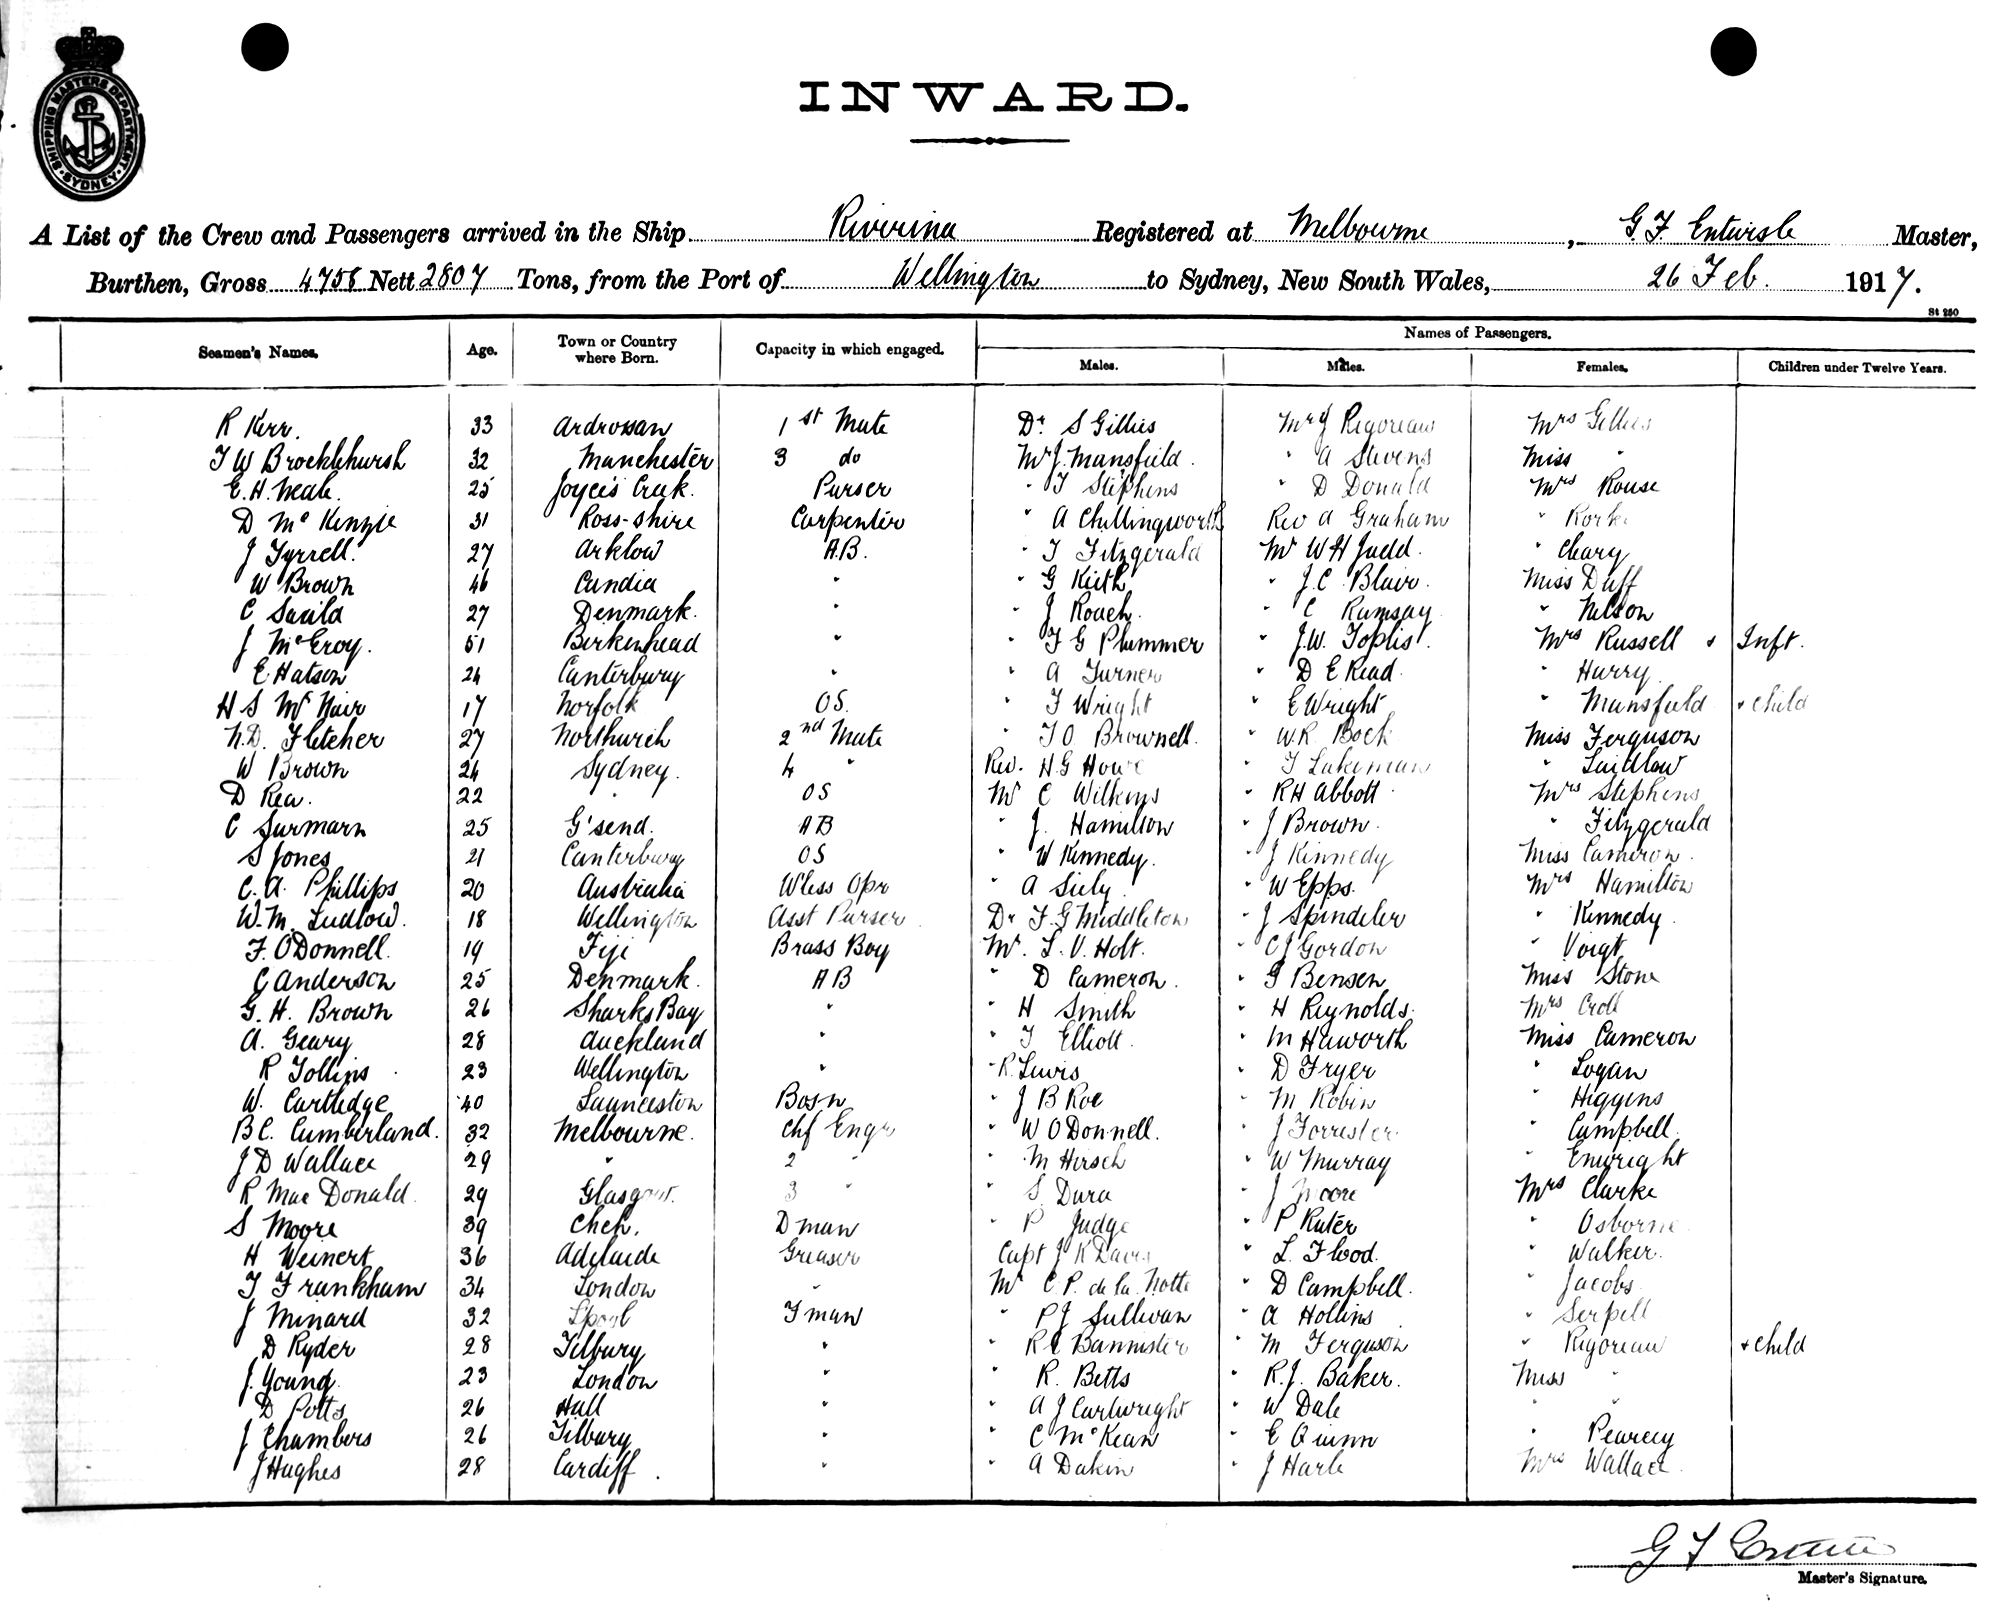 SHIPPING MASTERS DEPARTMENT
SYDNEY
INWARD.
A List of the Crew and Passengers arrived in the Ship Riverina Registered at Melbourne, G. F. Entwisle Master,
Burthen, Gross 4758 Nett 2807 Tons, from the Port of Wellington to Sydney, New South Wales, 26 Feb. 1917.
St 250
Names of Passengers.
Seamen's Names. Age. Town or Country where Born. Capacity in which engaged. Males. Males. Females. Children under Twelve Years.
R Kerr. 33 Ardrossan 1st Mate Dr S Gillies Mr J Rigoreau Mrs Gillies
T W Brocklehursh 32 Manchester 3 do Mr J. Mansfield. " A Stevens Miss "
E. H. Neale. 25 Joyce's Creek. Purser " T Stephens " D Donald Mrs Rouse
D McKenzie 31 Ross-shire Carpenter " A Chillingworth Rev A Graham " Rork
J Tyrrell. 27 Arklow A.B. " T Fitzgerald Mr W H Judd. " Chary
W Brown 46 Candia " " G Keith " J. C. Blair. Miss Duff
C 27 Denmark. " " J Roach. " C Ramsay. " Nelson
J McEroy. 51 Birkenhead " " F G Plummer " J. W. Toplis. Mrs Russell & Inft.
E Hatson 24 Canterbury " " A Turner " D E Read. " Harry
H S McNair 17 Norfolk OS. " T Wright " E Wright " Mansfield & child
N. D. Fletcher 27 Northwich 2nd Mate " T O Brownell. " W. R. Bock Miss Ferguson
W Brown 24 Sydney. 4 " Rev. H. G Howe " T Lakeman " Laidlaw
D Rea. 22 " OS Mr C Wilkins " R H Abbott Mrs Stephens
C Surmarn 25 G'send. AB " J. Hamilton " J Brown. " Fitzgerald
S Jones 21 Canterbury OS " W Kennedy. " J Kennedy Miss Cameron.
C. A. Phillips 20 Australia W'less Opr " A Siely " W Epps. Mrs Hamilton
W. M. Ludlow. 18 Wellington Asst Purser " Dr F. G Middleton " J Spindeler " Kennedy.
F. O'Donnell. 19 Fiji Brass Boy Mr. L. V. Holt. " C J Gordon " Voigt
C Anderson 25 Denmark. AB " D Cameron. " G Bensen Miss Stone
G. H. Brown 26 Sharks Bay " " H Smith " H Reynolds. Mrs Croll
A. Geary 28 Auckland " " T Elliott. " M Haworth Miss Cameron
R Tollins 23 Wellington " " R. Lewis " D Fryer " Logan
W. Cartledge 40 Launceston Bosn " J B Roe " M Robin " Higgins
B C. Cumberland. 32 Melbourne. Chf Engr " W O Donnell. " J Forrester " Campbell.
J D Wallace 29 " 2 " " M Hirsch " W Murray " Enwright
R Mac Donald. 29 Glasgow. 3 " " S. Dura " J Moore Mrs Clarke
S Moore 39 Cheh. D man " P Judge " P Ruter " Osborne
H Weinert 36 Adelaide Greaser Capt J K Davis " L. Flood. " Walker.
T Frankham 34 London " Mr C. P. de la Notte " D Campbell. " Jacobs.
J Minard 32 Lpool F man " P J Sullivan " A Hollins " Serpell
D Ryder 28 Tilbury " " R C Bannister " M Ferguson " Rigoreau & child
J. Young. 23 London " " R. Betts " R. J. Baker. Miss "
D Potts 26 Hull " " A J Cartwright " W Dale " "
J Chambers 26 Tilbury " " C McKean " E Quinn " Pearcey
J Hughes 28 Cardiff. " " A Dakin " J Harle Mrs Wallace.
Master's Signature.